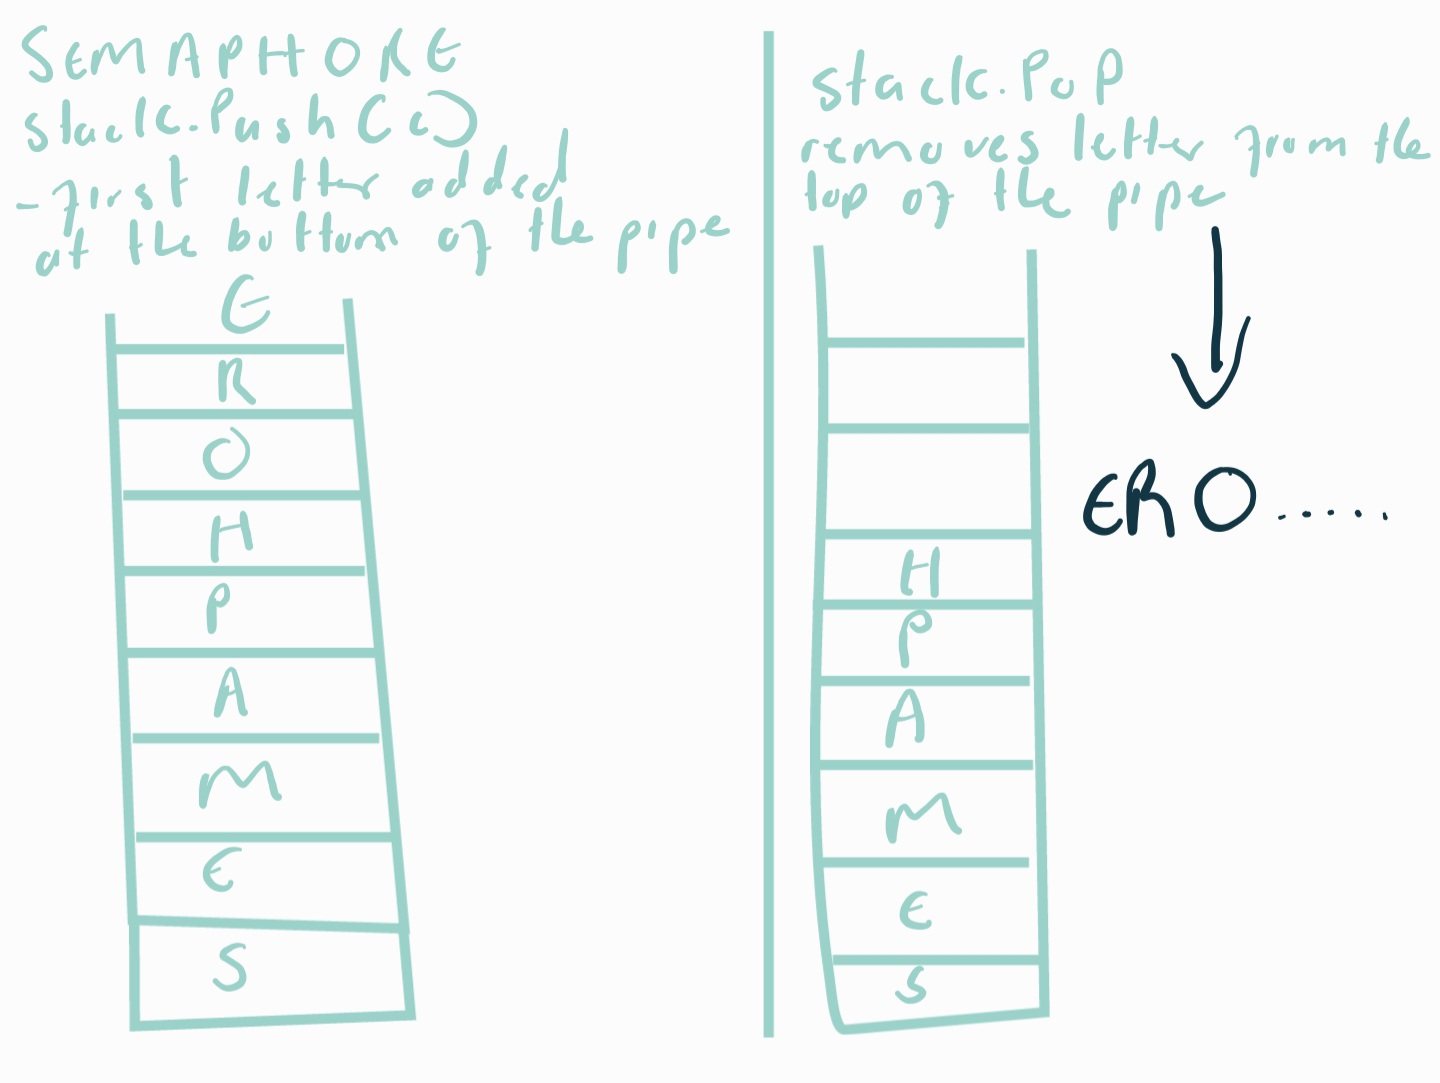 SEMAPHORE
stack.Push(c)
-first letter added
at the bottom of the pipe
E
R
O
H
P
A
M
E
S
stack.PoP
removes letter from the
top of the pipe
H
P
A
M
E
S
ERO.....